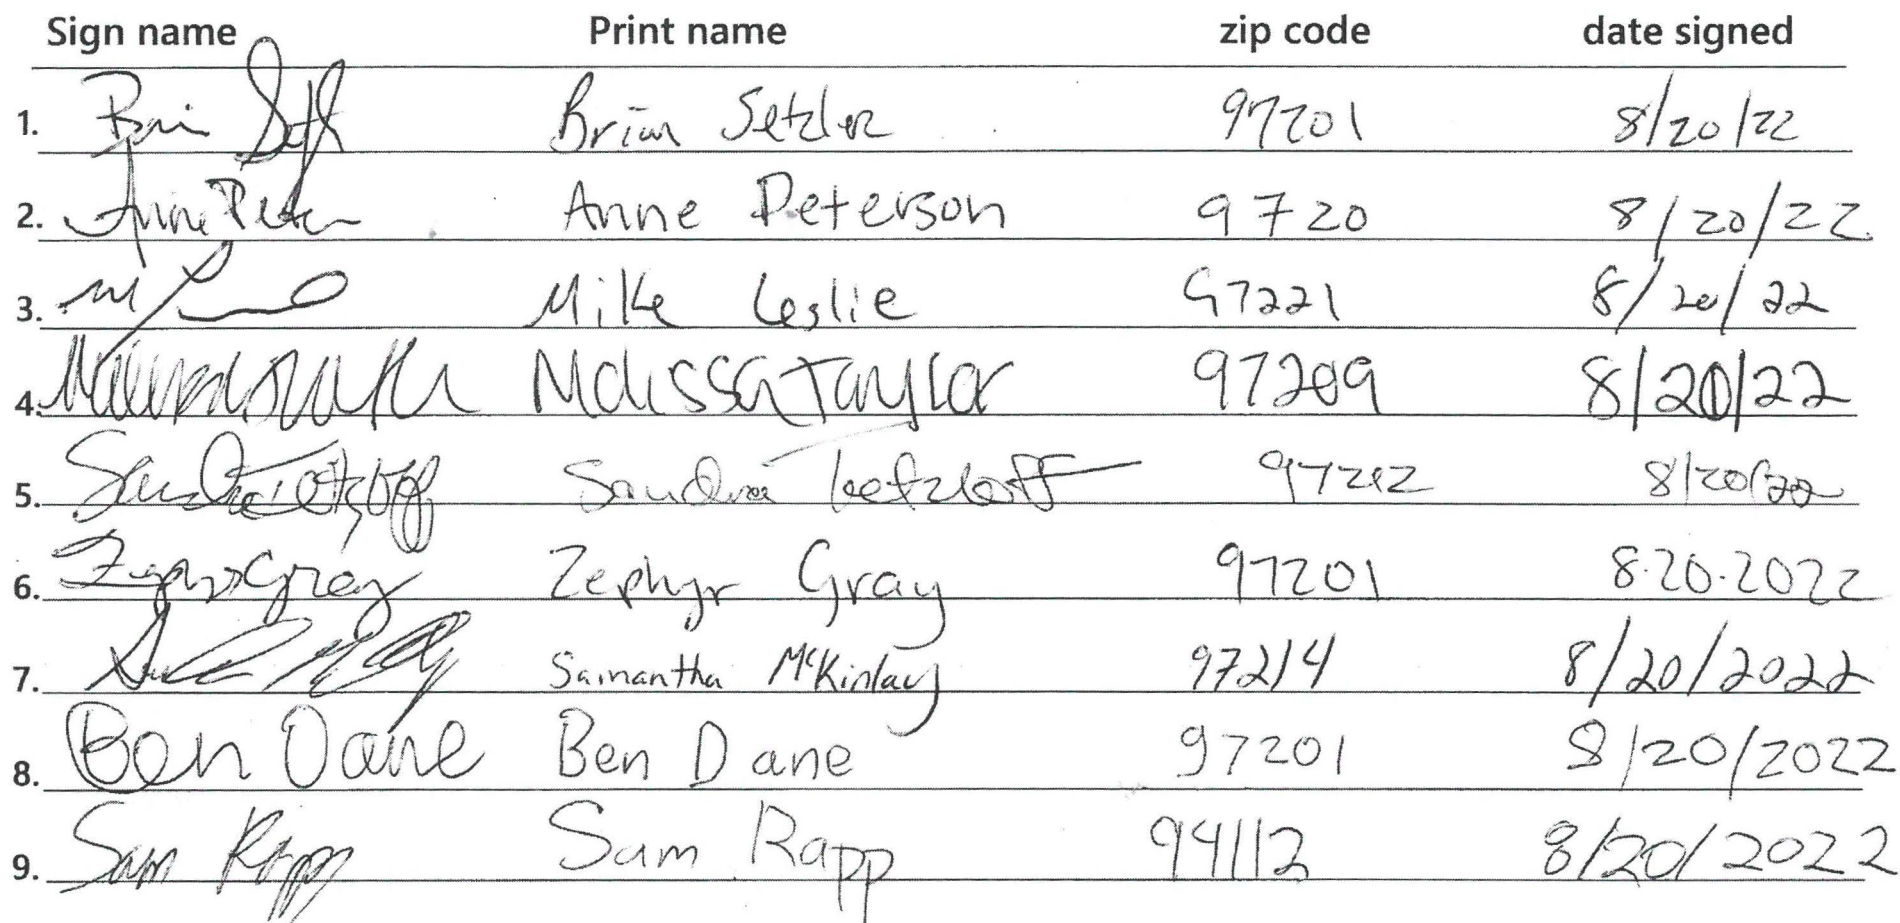 Sign name Print name zip code date signed
1. Brian Setzler 97201 8/20/22
2. Anne Peterson 9720 8/20/22
3. Mike Leslie 97221 8/20/22
4. Melissa Taylor 97209 8/20/22
5. Sandra Tetzloff 97212 8/20/22
6. Zephyr Gray Zephyr Gray 97201 8.20.2022
7. Samantha McKinlay 97214 8/20/2022
8. Ben Dane Ben Dane 97201 8/20/2022
9. Sam Rapp Sam Rapp 94112 8/20/2022